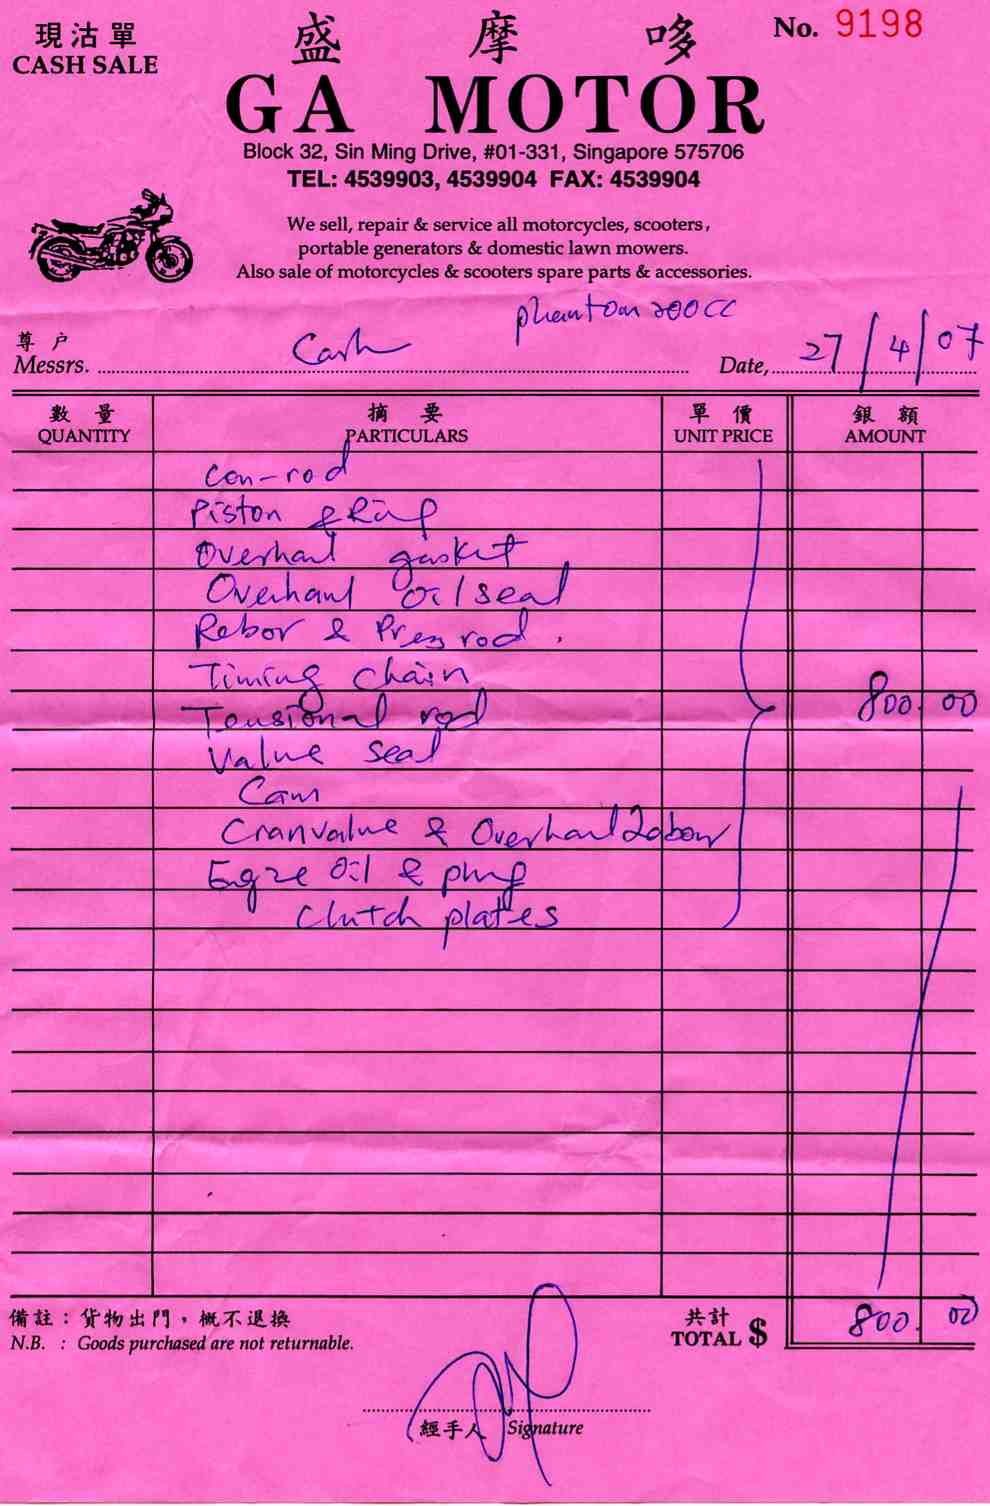 現沽單
CASH SALE
盛 摩 哆
No. 9198
GA MOTOR
Block 32, Sin Ming Drive, #01-331, Singapore 575706
TEL: 4539903, 4539904 FAX: 4539904
We sell, repair & service all motorcycles, scooters,
portable generators & domestic lawn mowers.
Also sale of motorcycles & scooters spare parts & accessories.
phantom 200CC
尊戶
Messrs. Cash Date, 27/4/07
數量 摘要 單價 銀額
QUANTITY PARTICULARS UNIT PRICE AMOUNT
Con-rod
Piston & Ring
Overhaul gasket
Overhaul Oil seal
Rebor & Press rod.
Timing chain
Tensional rod 800.00
Value seal
Cam
Cranvalue & Overhaul Labour
Engine Oil & plug
Clutch plates
備註：貨物出門，概不退換
N.B. : Goods purchased are not returnable.
共計
TOTAL $ 800.00
經手人 Signature